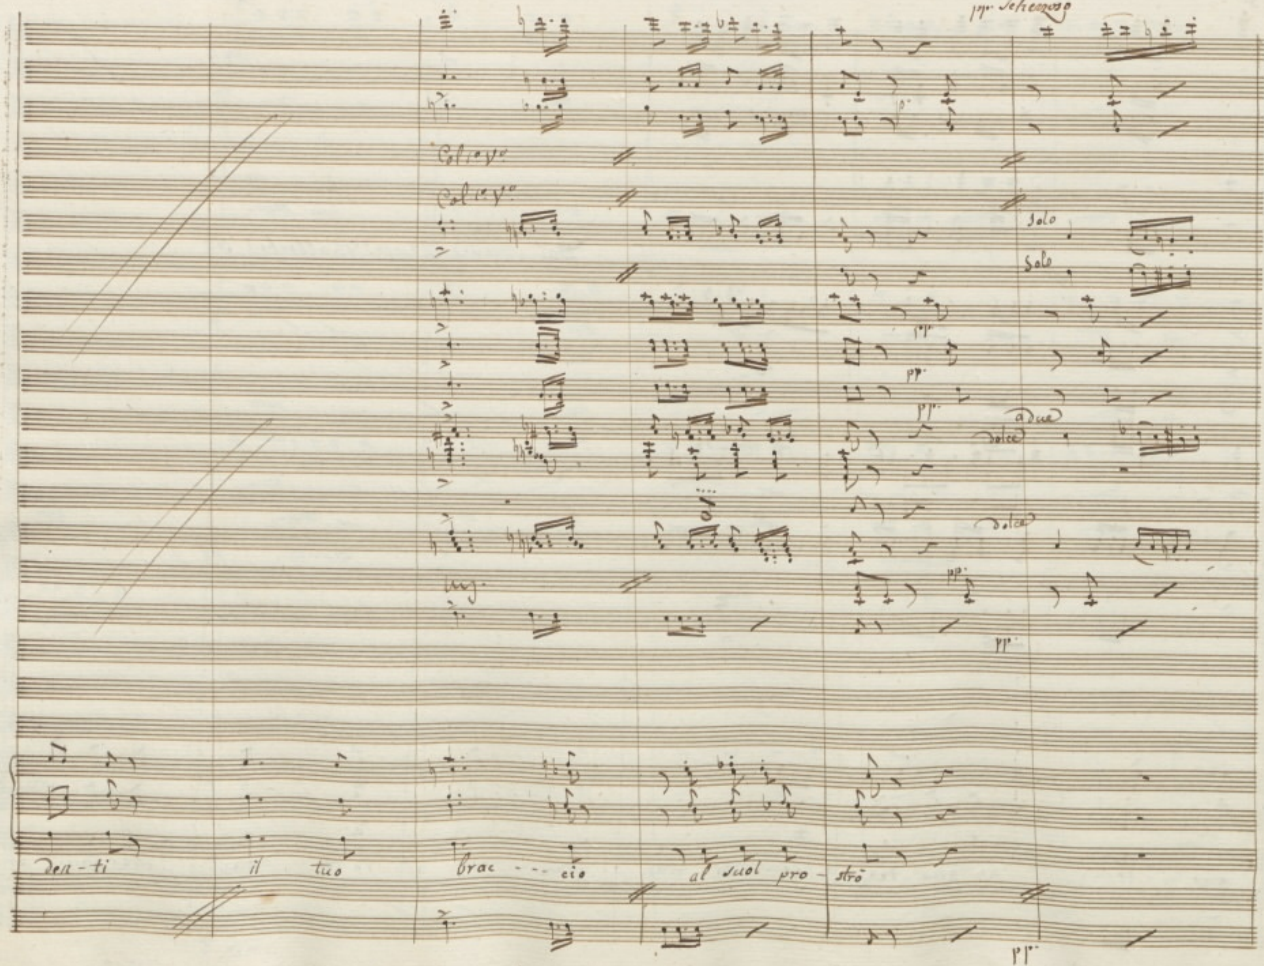 pp. scherzoso
Col 1º Vº
Col 1º Vº
Solo
Solo
pp.
pp.
pp.
a due
dolce
dolce
pp.
pp.
den-ti il tuo brac---cio al suol pro-strò
pp.